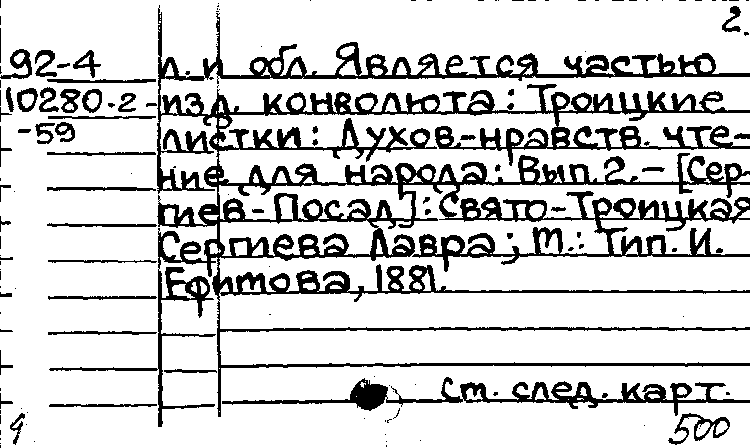 2.
92-4 л. и обл. Является частью
10280-2- изд. конволюта: Троицкие
-59 листки: Духов.-нравств. чте-
ние для народа: Вып. 2. – [Сер-
гиев-Посад]: Свято-Троицкая
Сергиева Лавра; М.: Тип. И.
Ефимова, 1881.
См. след. карт.
500